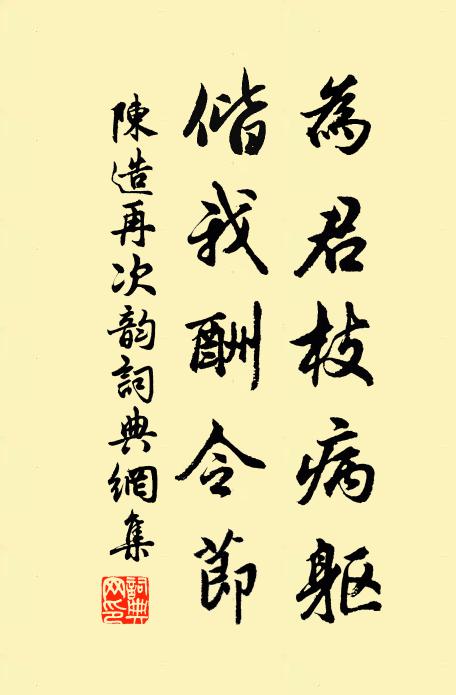 為君枝病軀
偕我酬令節
陳造再次韵詞典網集
詞典網印